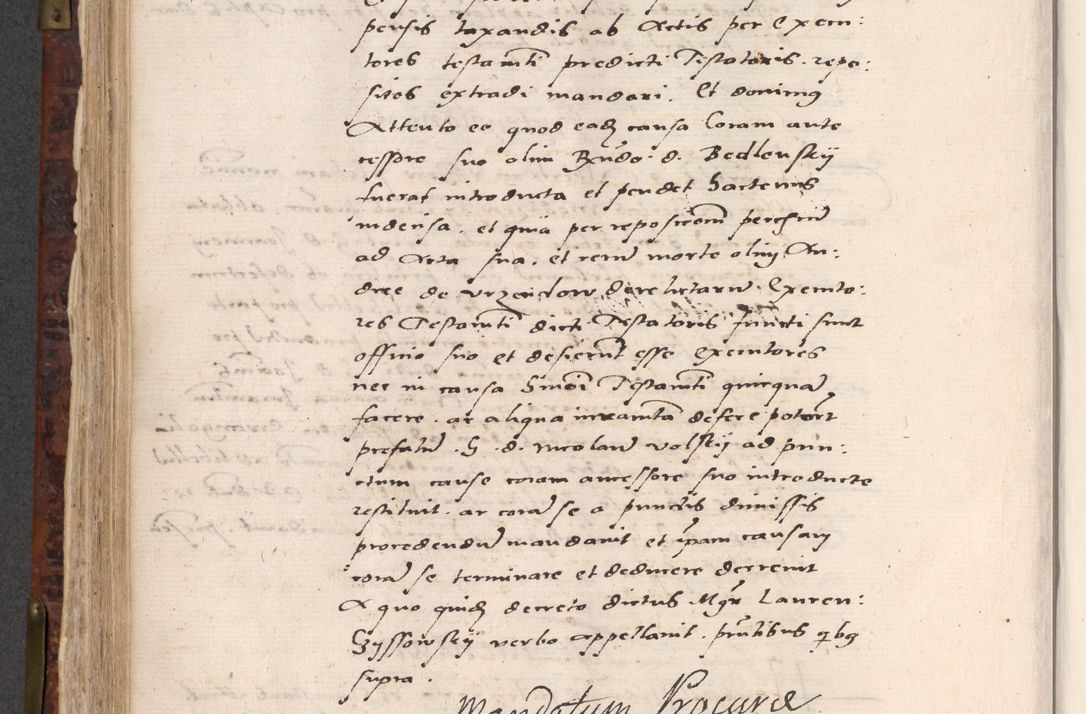 pensis taxandis ab Actis per Execu:
tores testamti predicti Testatoris. repo:
sitos extradi mandari. Et dominus
Attento eo quod eadem causa Coram ante
cessore suo olim Rndo. d. Bedlenskij
fuerat introducta et pendet hactenus
indecisa. et quia per repositionem pecuniarum
ad Acta sua. et rerum morte olim An:
dree de Urzendow derelictarum Executo:
res Testamti dicti Testatoris functi sunt
officio suo et desierunt esse executores
nec in causa Simoi Testamti quicquam
facere. ac aliqua incramta defere poterint
prefatum. G. d. Nicolaum Volskij ad pun:
ctum cause coram ancessore suo introducte
restituit. ac coram se a punctis dimissis
procedendum mandavit et ipam causam
coram se terminare et deducere decrevit
A quo quidem decreto dictus Mgr Lauren:
Czyssowskij verbo appellavit. pntibus qbus
supra.
Mandatum Procure